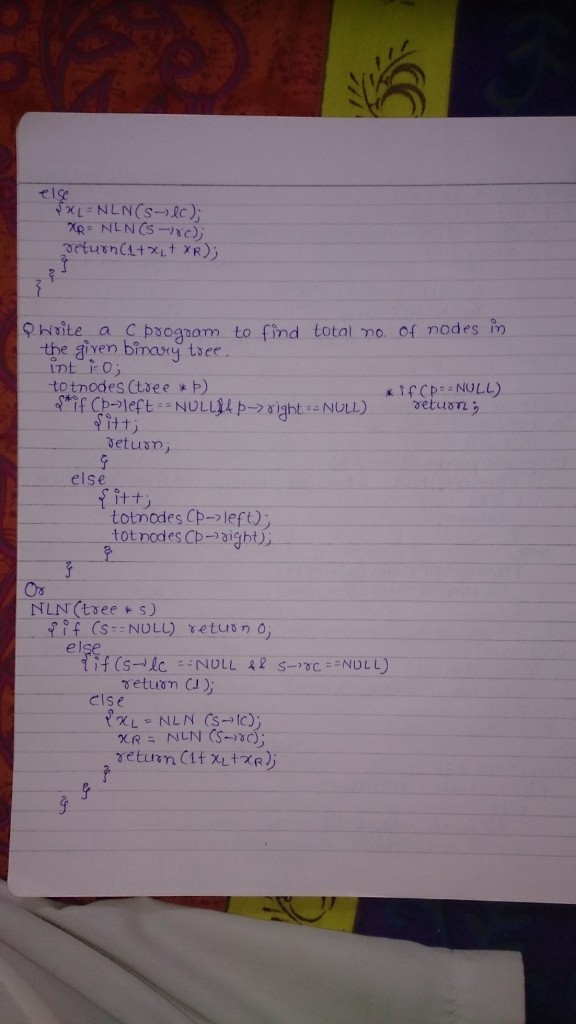 else
{xL = NLN(s→lc);
xR = NLN(s→rc);
return(1+xL+xR);
}
}
}
Q Write a C program to find total no. of nodes in
the given binary tree.
int i=0;
totnodes (tree *p)
{*if (p→left == NULL && p→right == NULL)
* if (p==NULL)
return;
{i++;
return;
}
else
{i++;
totnodes (p→left);
totnodes (p→right);
}
}
Or
NLN (tree * s)
{if (s==NULL) return 0;
else
{if (s→lc == NULL && s→rc == NULL)
return (1);
else
{xL = NLN (s→lc);
xR = NLN (s→rc);
return (1+xL+xR);
}
}
}